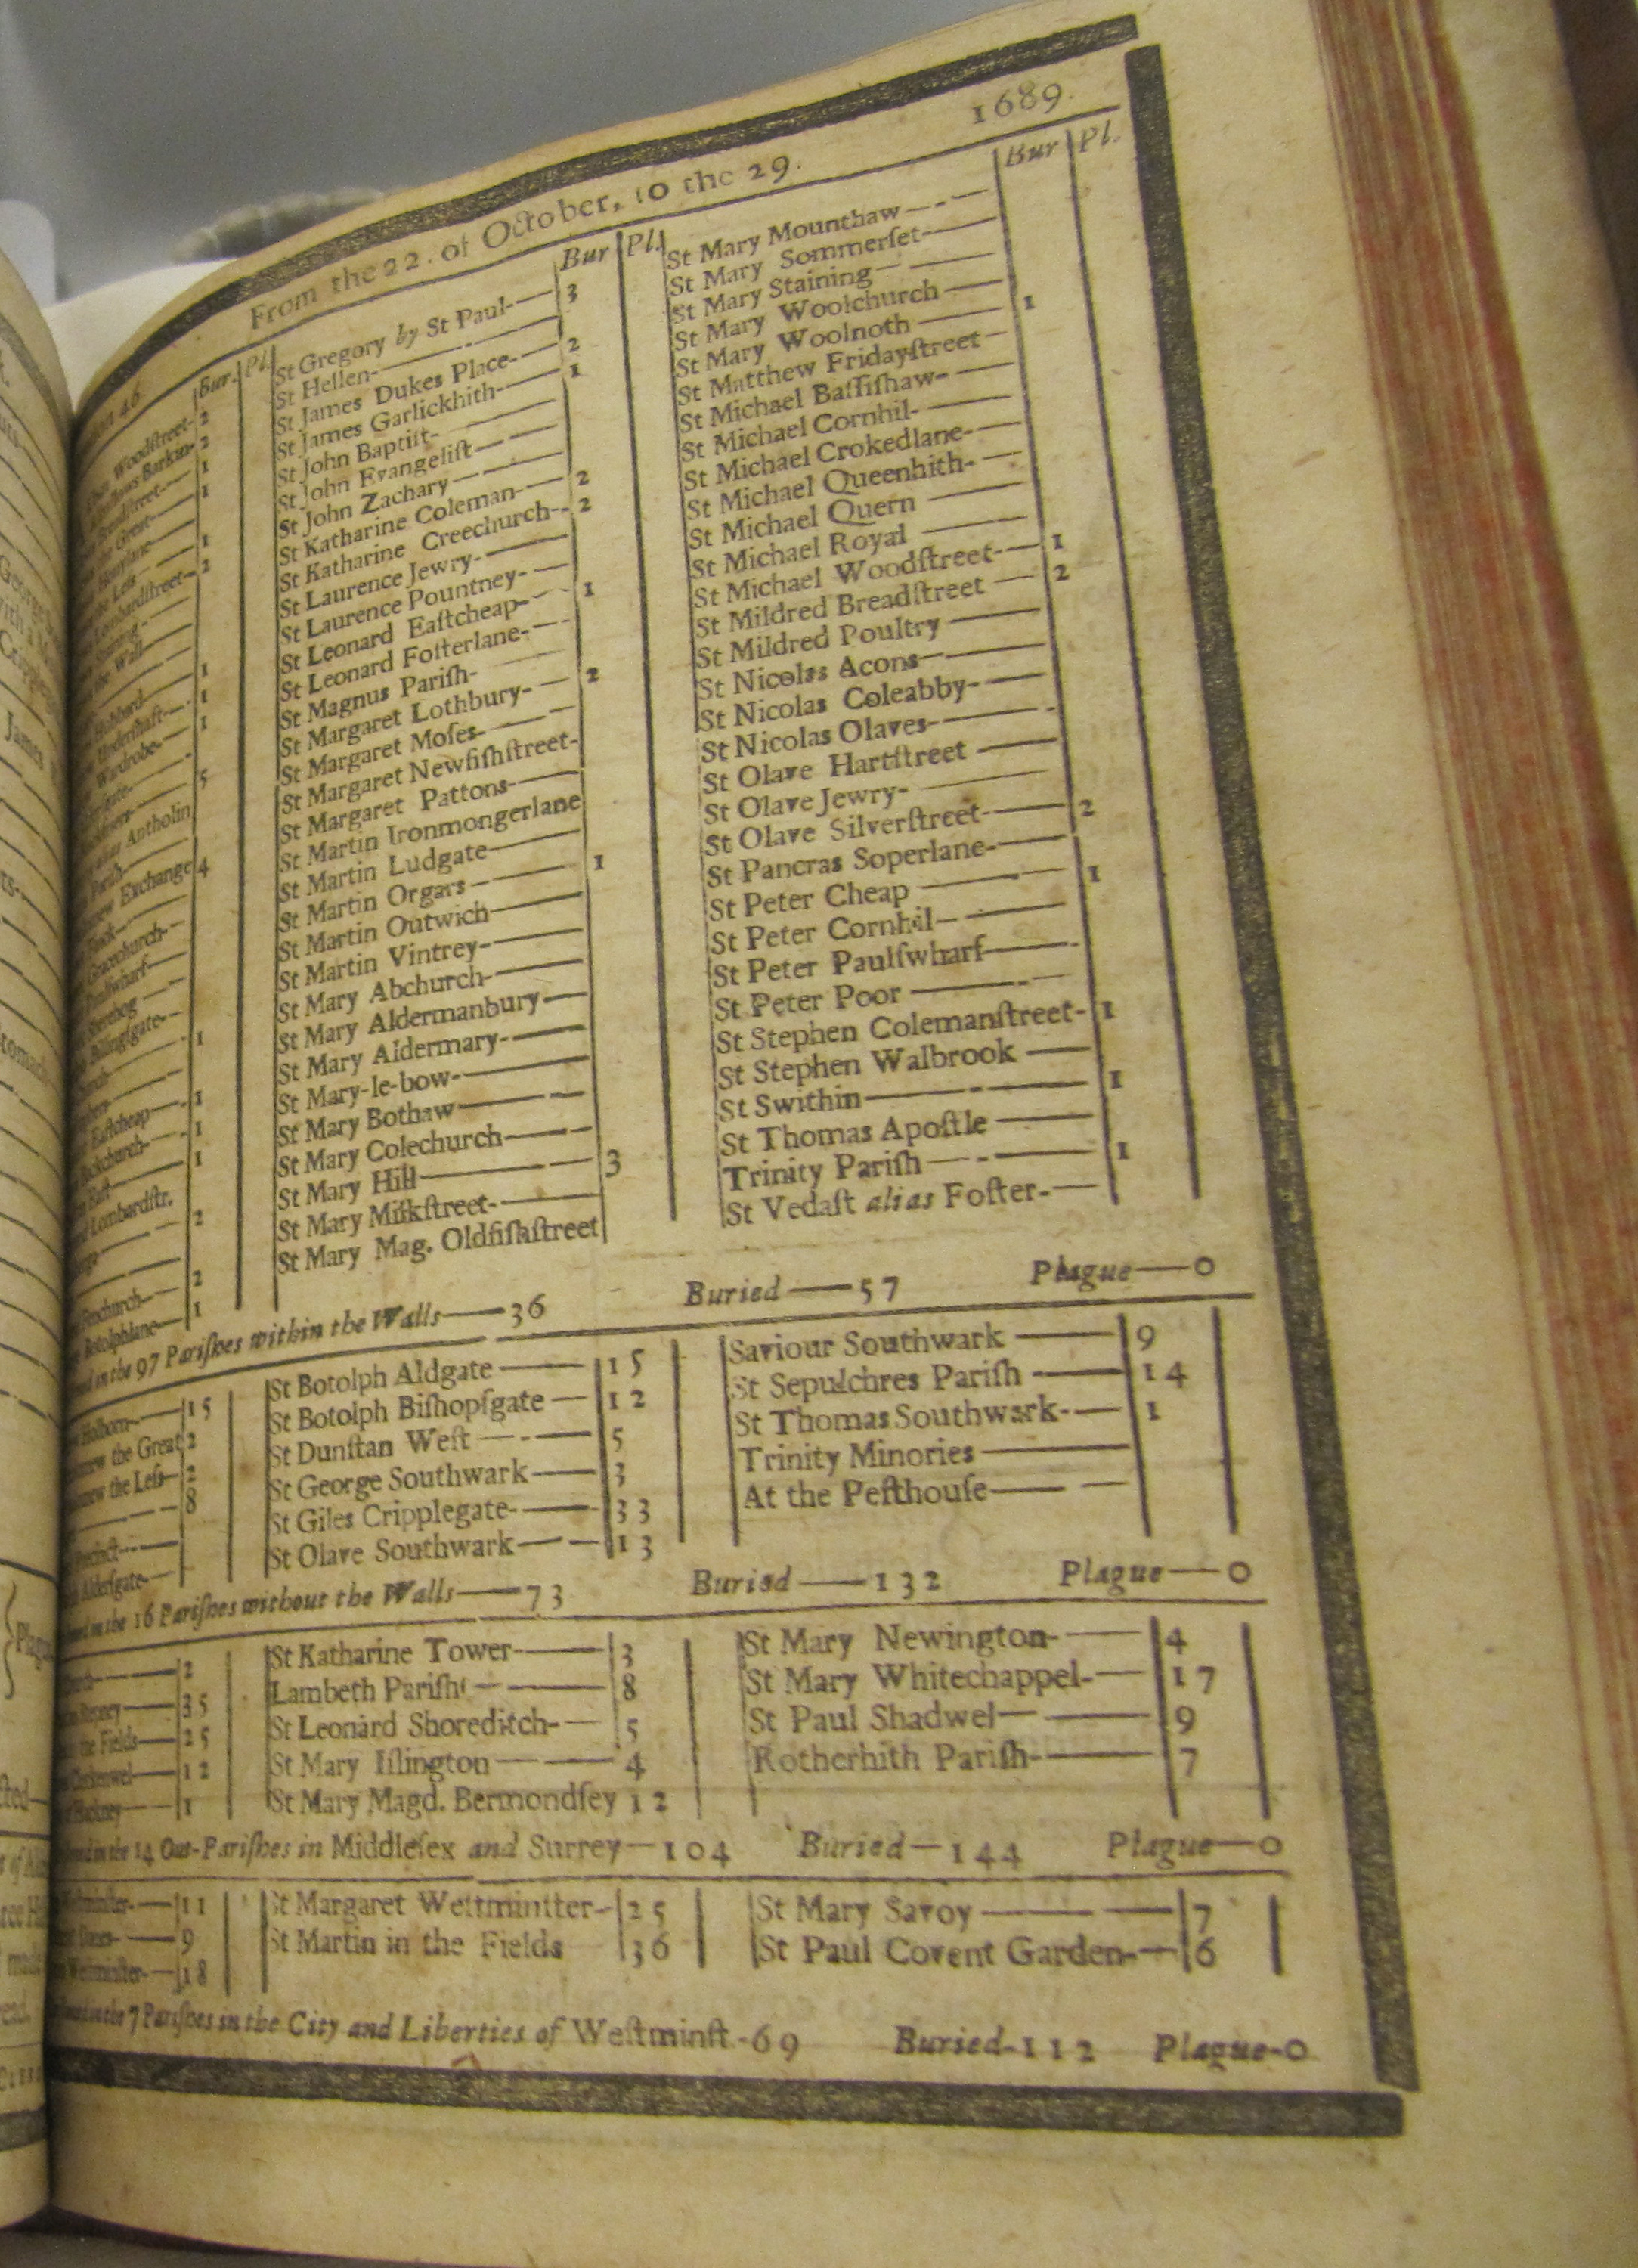 From the 22. of October, to the 29. 1689.
46
Bur. Pl.
Woodſtreet- 2
Barkin- 2
Breadſtreet- 1
Great- 1
Leſs 1
Lombardſtreet- 2
the Wall
Hubbard 1
Underſhaft- 1
Wardrobe- 1
5
alias Antholin
Pariſh
Exchange 4
Gracechurch-
Paulſwharf
Sherehog
Billingſgate-
1
Eaſtcheap 1
Backchurch 1
Eaſt 1
Lombardſtr.
2
Fenchurch 2
Botolphlane 1
Bur Pl.
St Gregory by St Paul- 3
St Hellen-
St James Dukes Place- 2
St James Garlickhith- 1
St John Baptiſt-
St John Evangeliſt
St John Zachary
St Katharine Coleman- 2
St Katharine Creechurch- 2
St Laurence Jewry-
St Laurence Pountney-
St Leonard Eaſtcheap- 1
St Leonard Foſterlane-
St Magnus Pariſh-
St Margaret Lothbury- 2
St Margaret Moſes-
St Margaret Newfiſhſtreet-
St Margaret Pattons-
St Martin Ironmongerlane
St Martin Ludgate
St Martin Orgars 1
St Martin Outwich
St Martin Vintrey-
St Mary Abchurch-
St Mary Aldermanbury
St Mary Aldermary-
St Mary-le-bow-
St Mary Bothaw
St Mary Colechurch
St Mary Hill 3
St Mary Milkſtreet-
St Mary Mag. Oldfiſhſtreet
Bur Pl.
St Mary Mounthaw
St Mary Sommerſet
St Mary Staining
St Mary Woolchurch
St Mary Woolnoth 1
St Matthew Fridayſtreet
St Michael Baſſiſhaw-
St Michael Cornhil-
St Michael Crokedlane-
St Michael Queenhith-
St Michael Quern
St Michael Royal
St Michael Woodſtreet- 1
St Mildred Breadſtreet 2
St Mildred Poultry
St Nicolas Acons
St Nicolas Coleabby-
St Nicolas Olaves-
St Olave Hartſtreet
St Olave Jewry-
St Olave Silverſtreet- 2
St Pancras Soperlane-
St Peter Cheap 1
St Peter Cornhil
St Peter Paulſwharf
St Peter Poor
St Stephen Colemanſtreet- 1
St Stephen Walbrook
St Swithin 1
St Thomas Apoſtle
Trinity Pariſh 1
St Vedaſt alias Foſter-
in the 97 Pariſhes within the Walls—36 Buried—57 Plague—0
Holborn 15
the Great 2
the Leſs 2
8
Precinct
Alderſgate-
St Botolph Aldgate 15
St Botolph Biſhopſgate 12
St Dunſtan Weſt 5
St George Southwark 3
St Giles Cripplegate- 33
St Olave Southwark 13
Saviour Southwark 9
St Sepulchres Pariſh 14
St Thomas Southwark- 1
Trinity Minories
At the Peſthouſe
in the 16 Pariſhes without the Walls—73 Buried—132 Plague—0
2
Stepney 35
the Fields 25
Clerkenwel 12
Hackney 1
St Katharine Tower- 3
Lambeth Pariſh 8
St Leonard Shoreditch- 5
St Mary Iſlington 4
St Mary Magd. Bermondſey 12
St Mary Newington- 4
St Mary Whitechappel- 17
St Paul Shadwel 9
Rotherhith Pariſh- 7
in the 14 Out-Pariſhes in Middleſex and Surrey—104 Buried—144 Plague—0
Weſtminſter 11
9
Weſtminſter 18
St Margaret Weſtminſter- 25
St Martin in the Fields 36
St Mary Savoy 7
St Paul Covent Garden- 6
in the 7 Pariſhes in the City and Liberties of Weſtminſt.-69 Buried-112 Plague-0